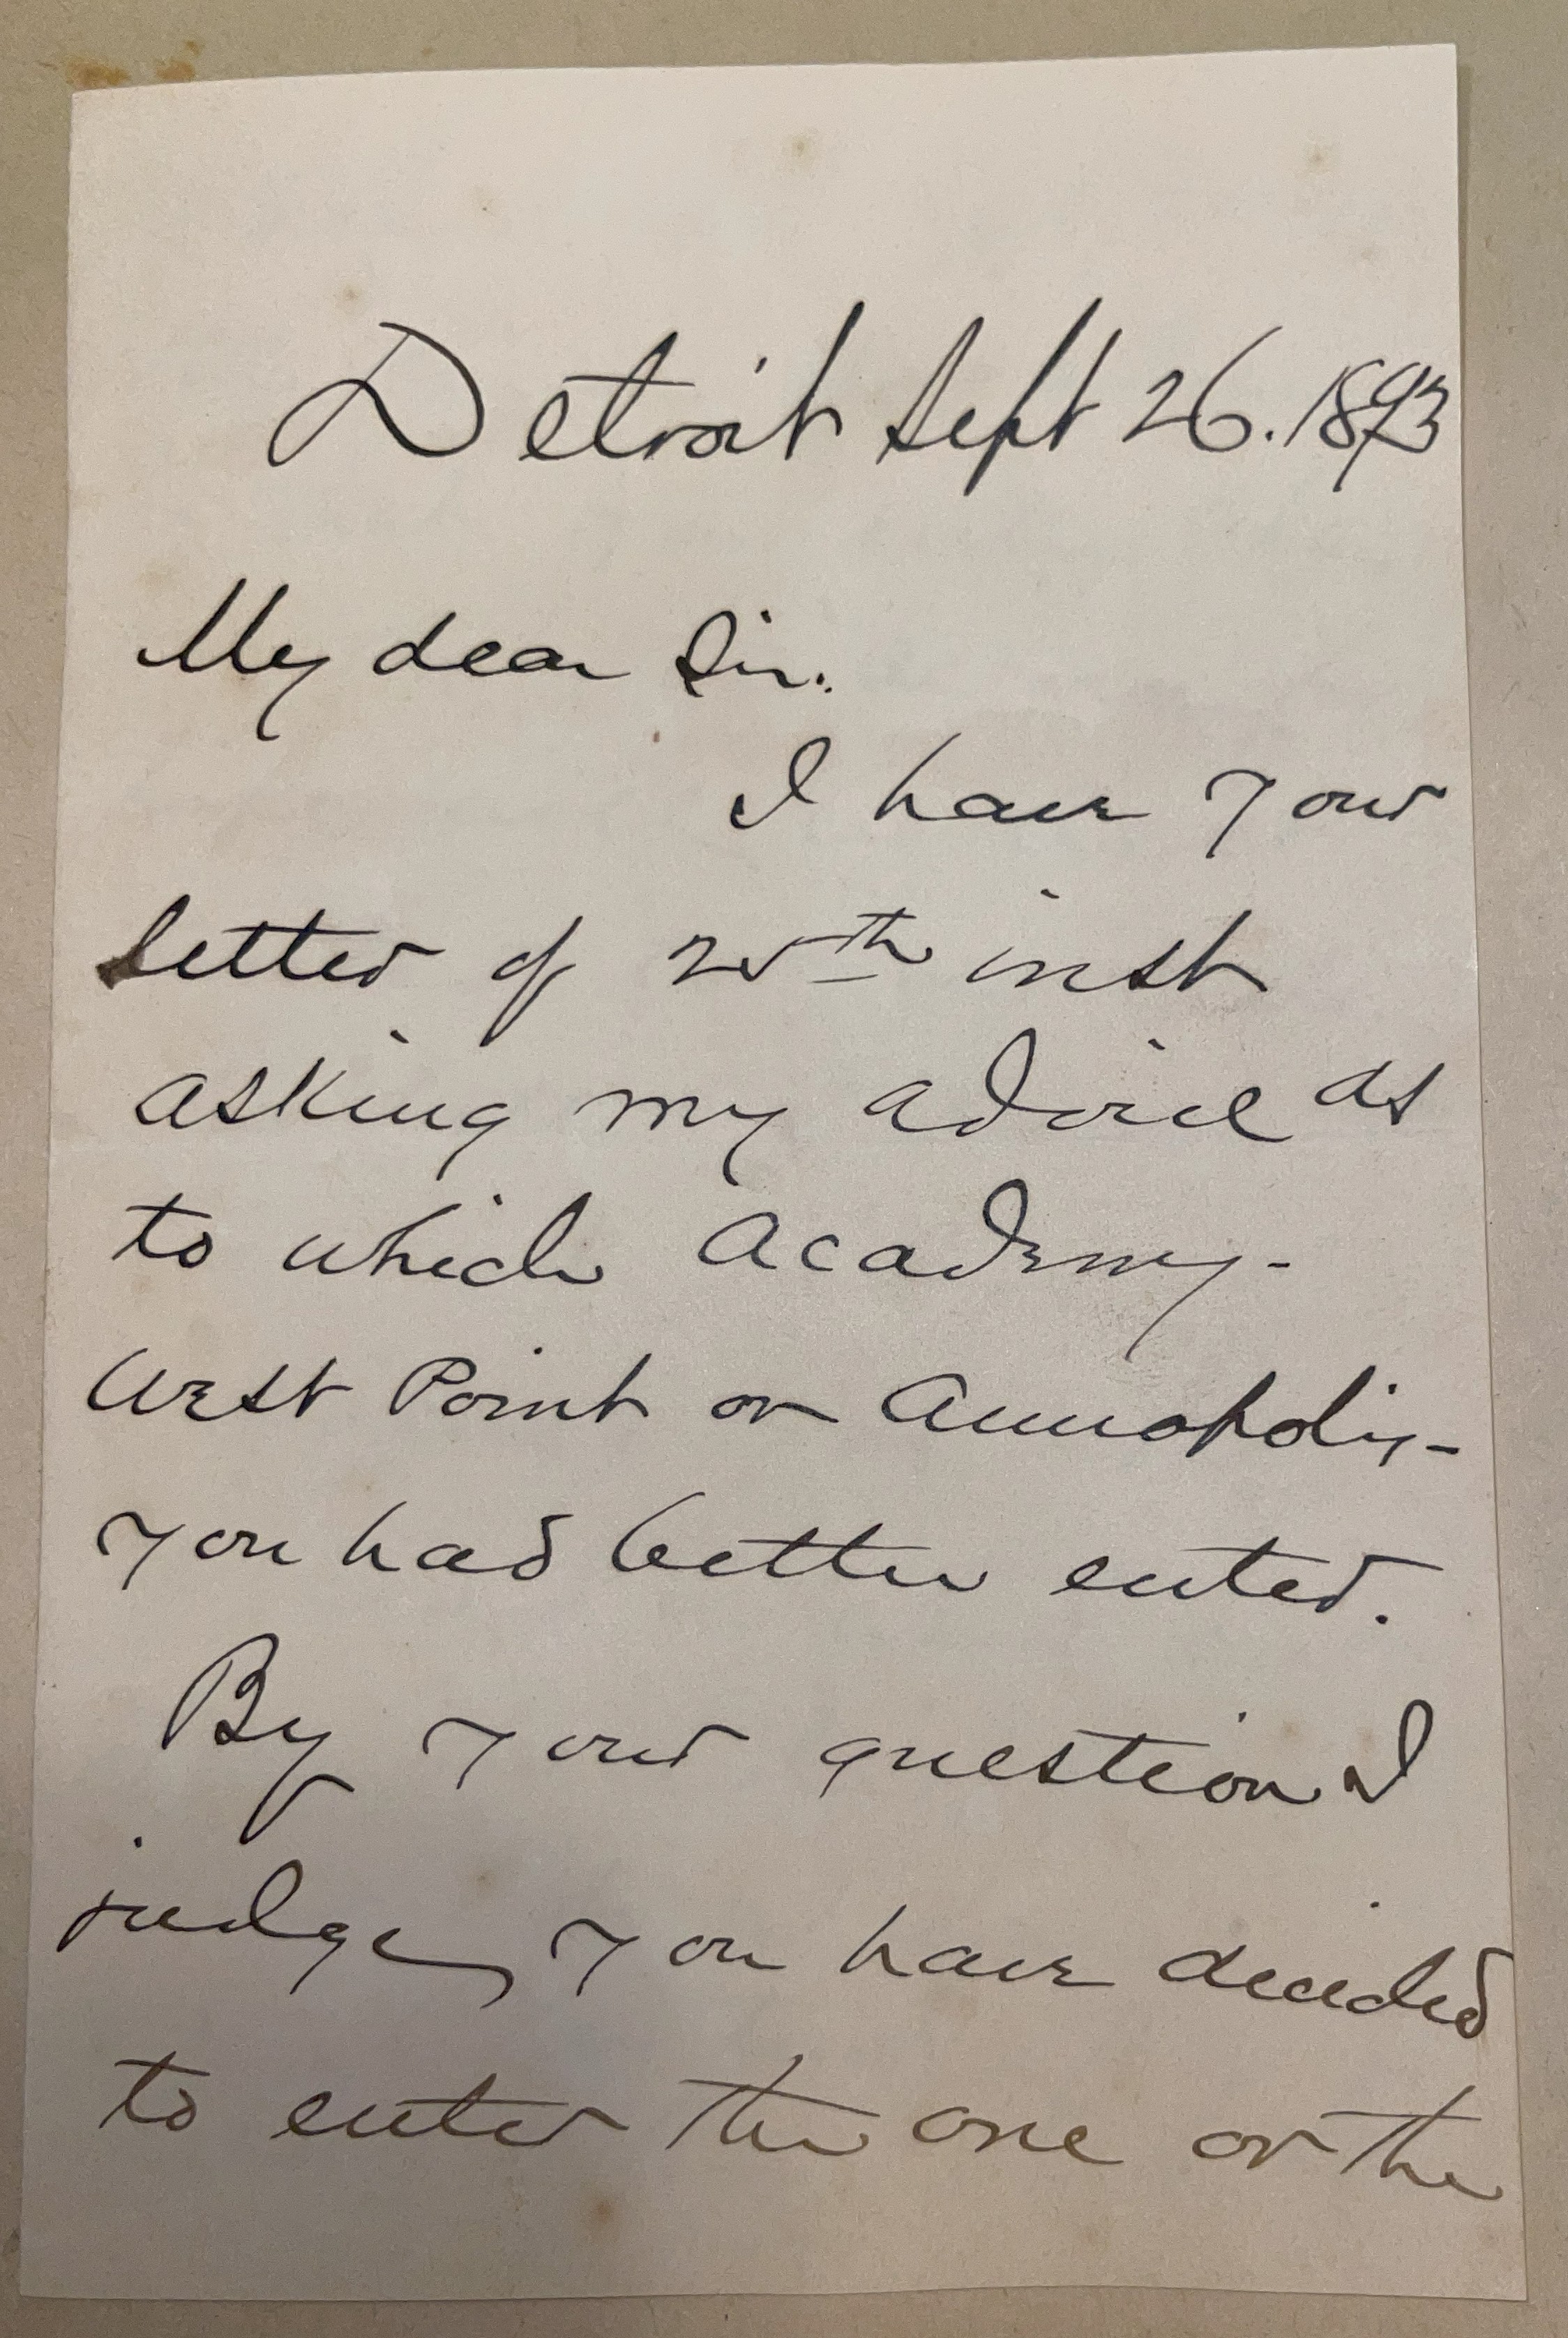 Detroit Sept 26. 1893
My dear Sir.
I have your
letter of 25th inst
asking my advice as
to which Academy-
West Point or Annapolis-
you had better enter.
By your question I
judge, you have decided
to enter the one or the